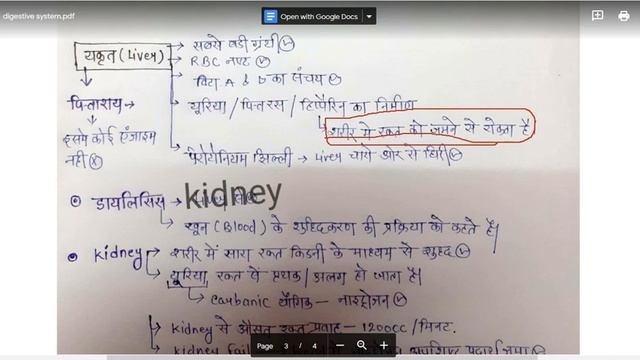 digestive system.pdf
Open with Google Docs
यकृत (Liver) → सबसे बडी ग्रंथी
→ RBC नष्ट
→ विटा A & D का संचय
पित्ताशय → → यूरिया / पित्तरस / हिपैरिन का निर्माण
शरीर मे रक्त को जमने से रोकता है
इसमे कोई एंजाइम नही
झिल्ली → Liver चारो ओर से घिरी
डायलिसिस → kidney
→ खून (Blood) के शुद्धिकरण की प्रक्रिया को कहते हैं|
kidney → शरीर में सारा रक्त किडनी के माध्यम से शुद्ध
→ यूरिया रक्त से प्रथक / अलग हो जाता है|
→ Carbanic यौगिक — नाइट्रोजन
→ kidney से औसत रक्त प्रवाह — 1200cc / मिनट.
kidney
Page 3 / 4